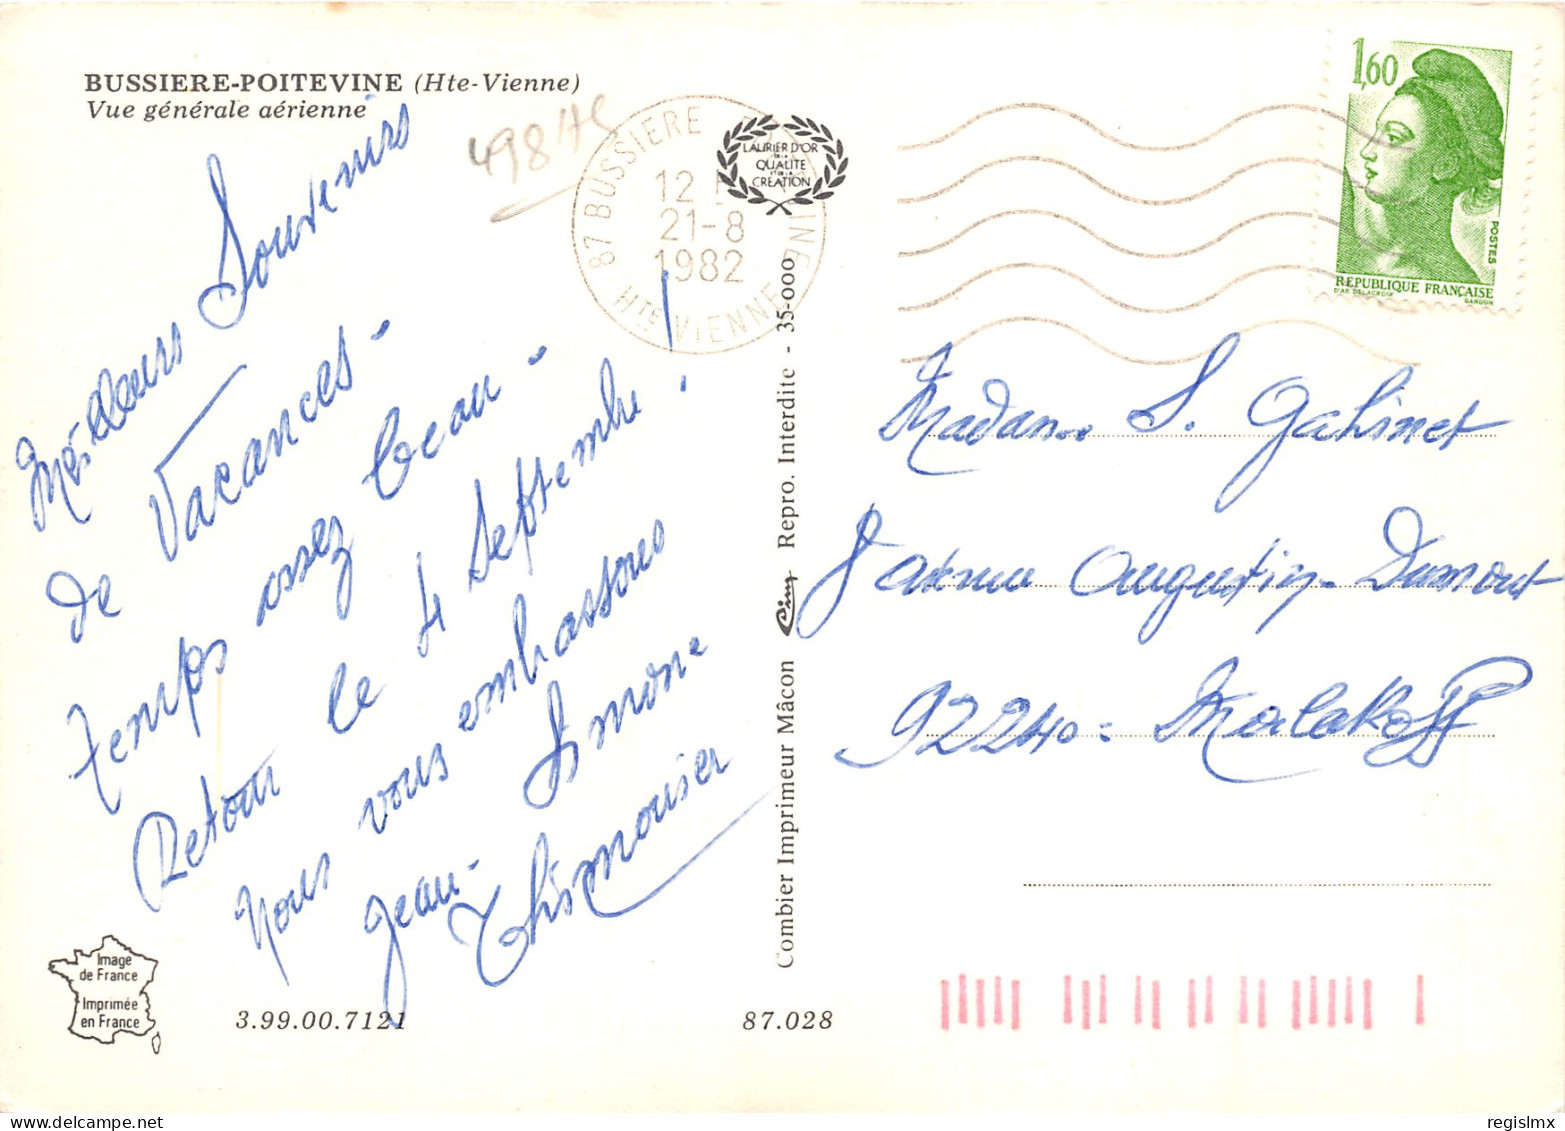 BUSSIERE-POITEVINE (Hte-Vienne)
Vue générale aérienne
Meilleurs Souvenirs
de Vacances-
temps assez beau-
Retour le 4 septembre!
Nous vous embrassons
Jean- Simone
Thismousier
3.99.00.7121
87.028
Image
de France
Imprimée
en France
87 BUSSIERE
12
21-8
1982
HTE VIENNE
LAURIER D'OR
DE LA
QUALITE
ET DE LA
CREATION
Combier Imprimeur Mâcon
Cim
Repro. Interdite - 35-000
1,60
POSTES
REPUBLIQUE FRANÇAISE
D'AP. DELACROIX GANDON
Madame S. Gahinet
8 avenue Augustin-Dumont
92240- Malakoff
regislmx